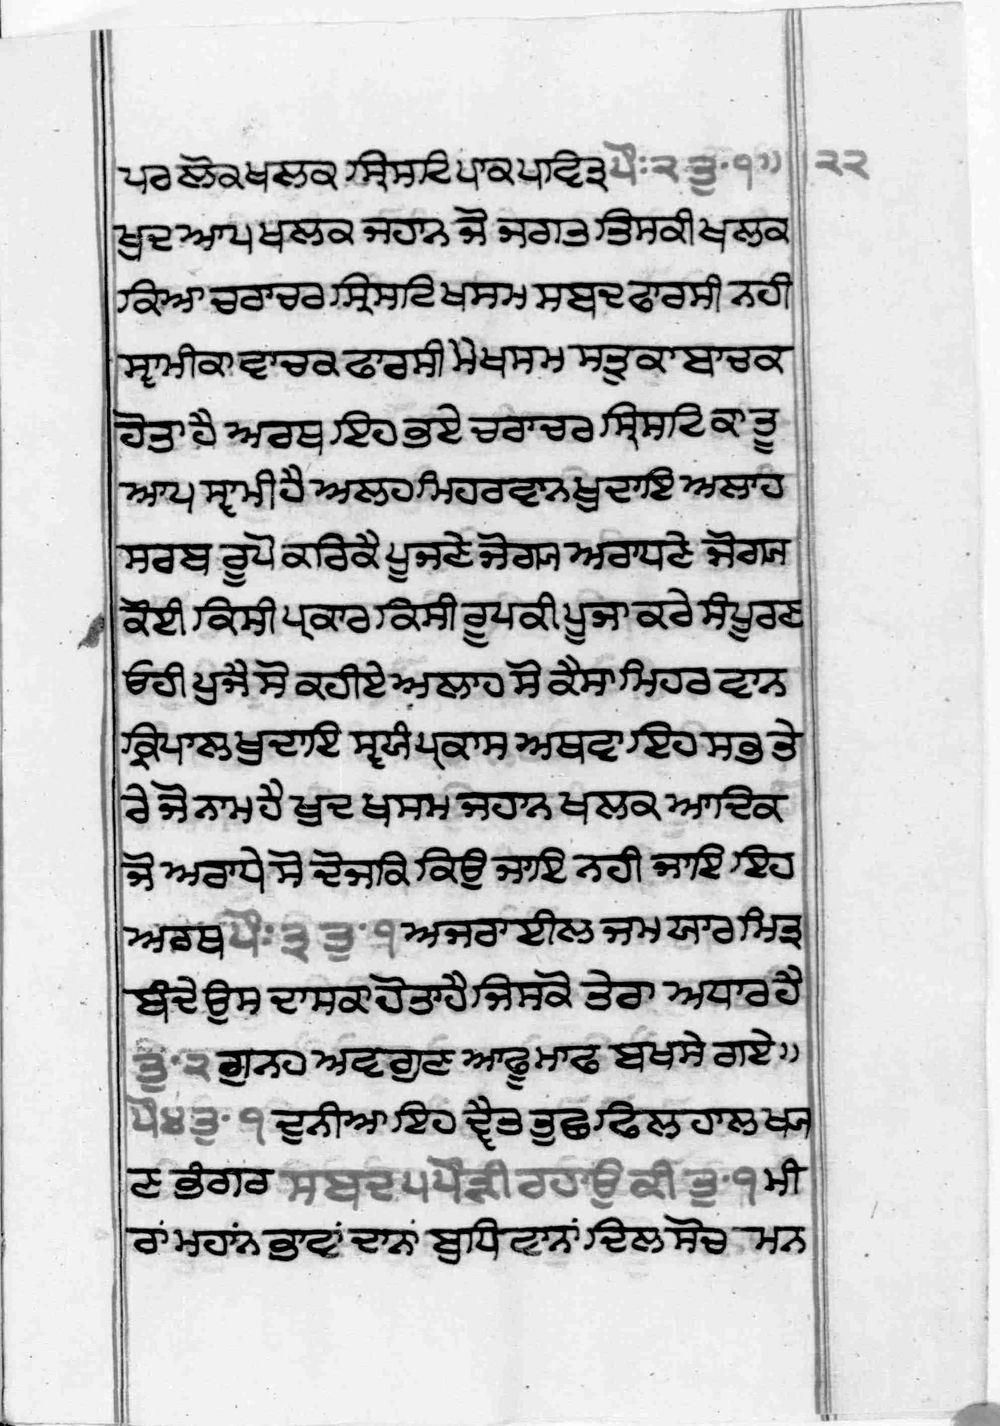 ਪਰ ਲੋਕ ਖਲਕ ਸ੍ਰਿਸਟਿ ਪਾਕ ਪਾਵਿਤ੍ਰ ਪੌਃ੨ ਤੁ·੧॥ ੨੨
ਖੁਦ ਆਪ ਖਲਕ ਜਹਾਨ ਜੋ ਜਗਤ ਤਿਸਕੀ ਖਲਕ
ਕਿਆ ਚਰਾਚਰ ਸ੍ਰਿਸਟਿ ਖਸਮ ਸਬਦ ਫਾਰਸੀ ਨਹੀ
ਸ੍ਵਾਮੀ ਕਾ ਵਾਚਕ ਫਾਰਸੀ ਮੈ ਖਸਮ ਸਤ੍ਰੁ ਕਾ ਬਾਚਕ
ਹੋਤਾ ਹੈ ਅਰਥ ਇਹ ਭਏ ਚਰਾਚਰ ਸ੍ਰਿਸਟਿ ਕਾ ਤੂ
ਆਪ ਸ੍ਵਾਮੀ ਹੈ ਅਲਹ ਮਿਹਰਵਾਨ ਖੁਦਾਇ ਅਲਾਹ
ਸਰਬ ਰੂਪੋ ਕਰਿਕੈ ਪੂਜਣੇ ਜੋਗ੍ਯ ਅਰਾਧਣੇ ਜੋਗ੍ਯ
ਕੋਈ ਕਿਸੀ ਪ੍ਰਕਾਰ ਕਿਸੀ ਰੂਪ ਕੀ ਪੂਜਾ ਕਰੇ ਸੰਪੂਰਣ
ਓਹੀ ਪੁਜੈ ਸੋ ਕਹੀਏ ਅਲਾਹ ਸੋ ਕੈਸਾ ਮਿਹਰਵਾਨ
ਕ੍ਰਿਪਾਲ ਖੁਦਾਇ ਸ੍ਵਯੰ ਪ੍ਰਕਾਸ ਅਥਵਾ ਇਹ ਸਭ ਤੇ
ਰੇ ਜੋ ਨਾਮ ਹੈ ਖੁਦ ਖਸਮ ਜਹਾਨ ਖਲਕ ਆਦਿਕ
ਜੋ ਅਰਾਧੇ ਸੋ ਦੋਜਕਿ ਕਿਉ ਜਾਇ ਨਹੀ ਜਾਇ ਇਹ
ਅਰਥ ਪੌਃ੩ ਤੁ·੧ ਅਜਰਾਈਲ ਜਮ ਯਾਰ ਮਿਤ੍ਰ
ਬੰਦੇ ਉਸ ਦਾਸ ਕਾ ਹੋਤਾ ਹੈ ਜਿਸਕੋ ਤੇਰਾ ਅਧਾਰ ਹੈ
ਤੁ·੨ ਗੁਨਹ ਅਵਗੁਣ ਆਫੂ ਮਾਫ ਬਖਸੇ ਗਏ॥
ਪੌ੪ ਤੁ·੧ ਦੁਨੀਆ ਇਹ ਦ੍ਵੈਤ ਤੁਛ ਫਿਲ ਹਾਲ ਖ੍ਯ
ਣ ਭੰਗਰ ਸਬਦ ੫ ਪੌੜੀ ਰਹਾਉ ਕੀ ਤੁ·੧ ਮੀ
ਰਾਂ ਮਹਾਂਨ ਭਾਵਾਂ ਦਾਨਾਂ ਬੁਧਿਵਾਨਾਂ ਦਿਲ ਸੋਚ ਮਨ